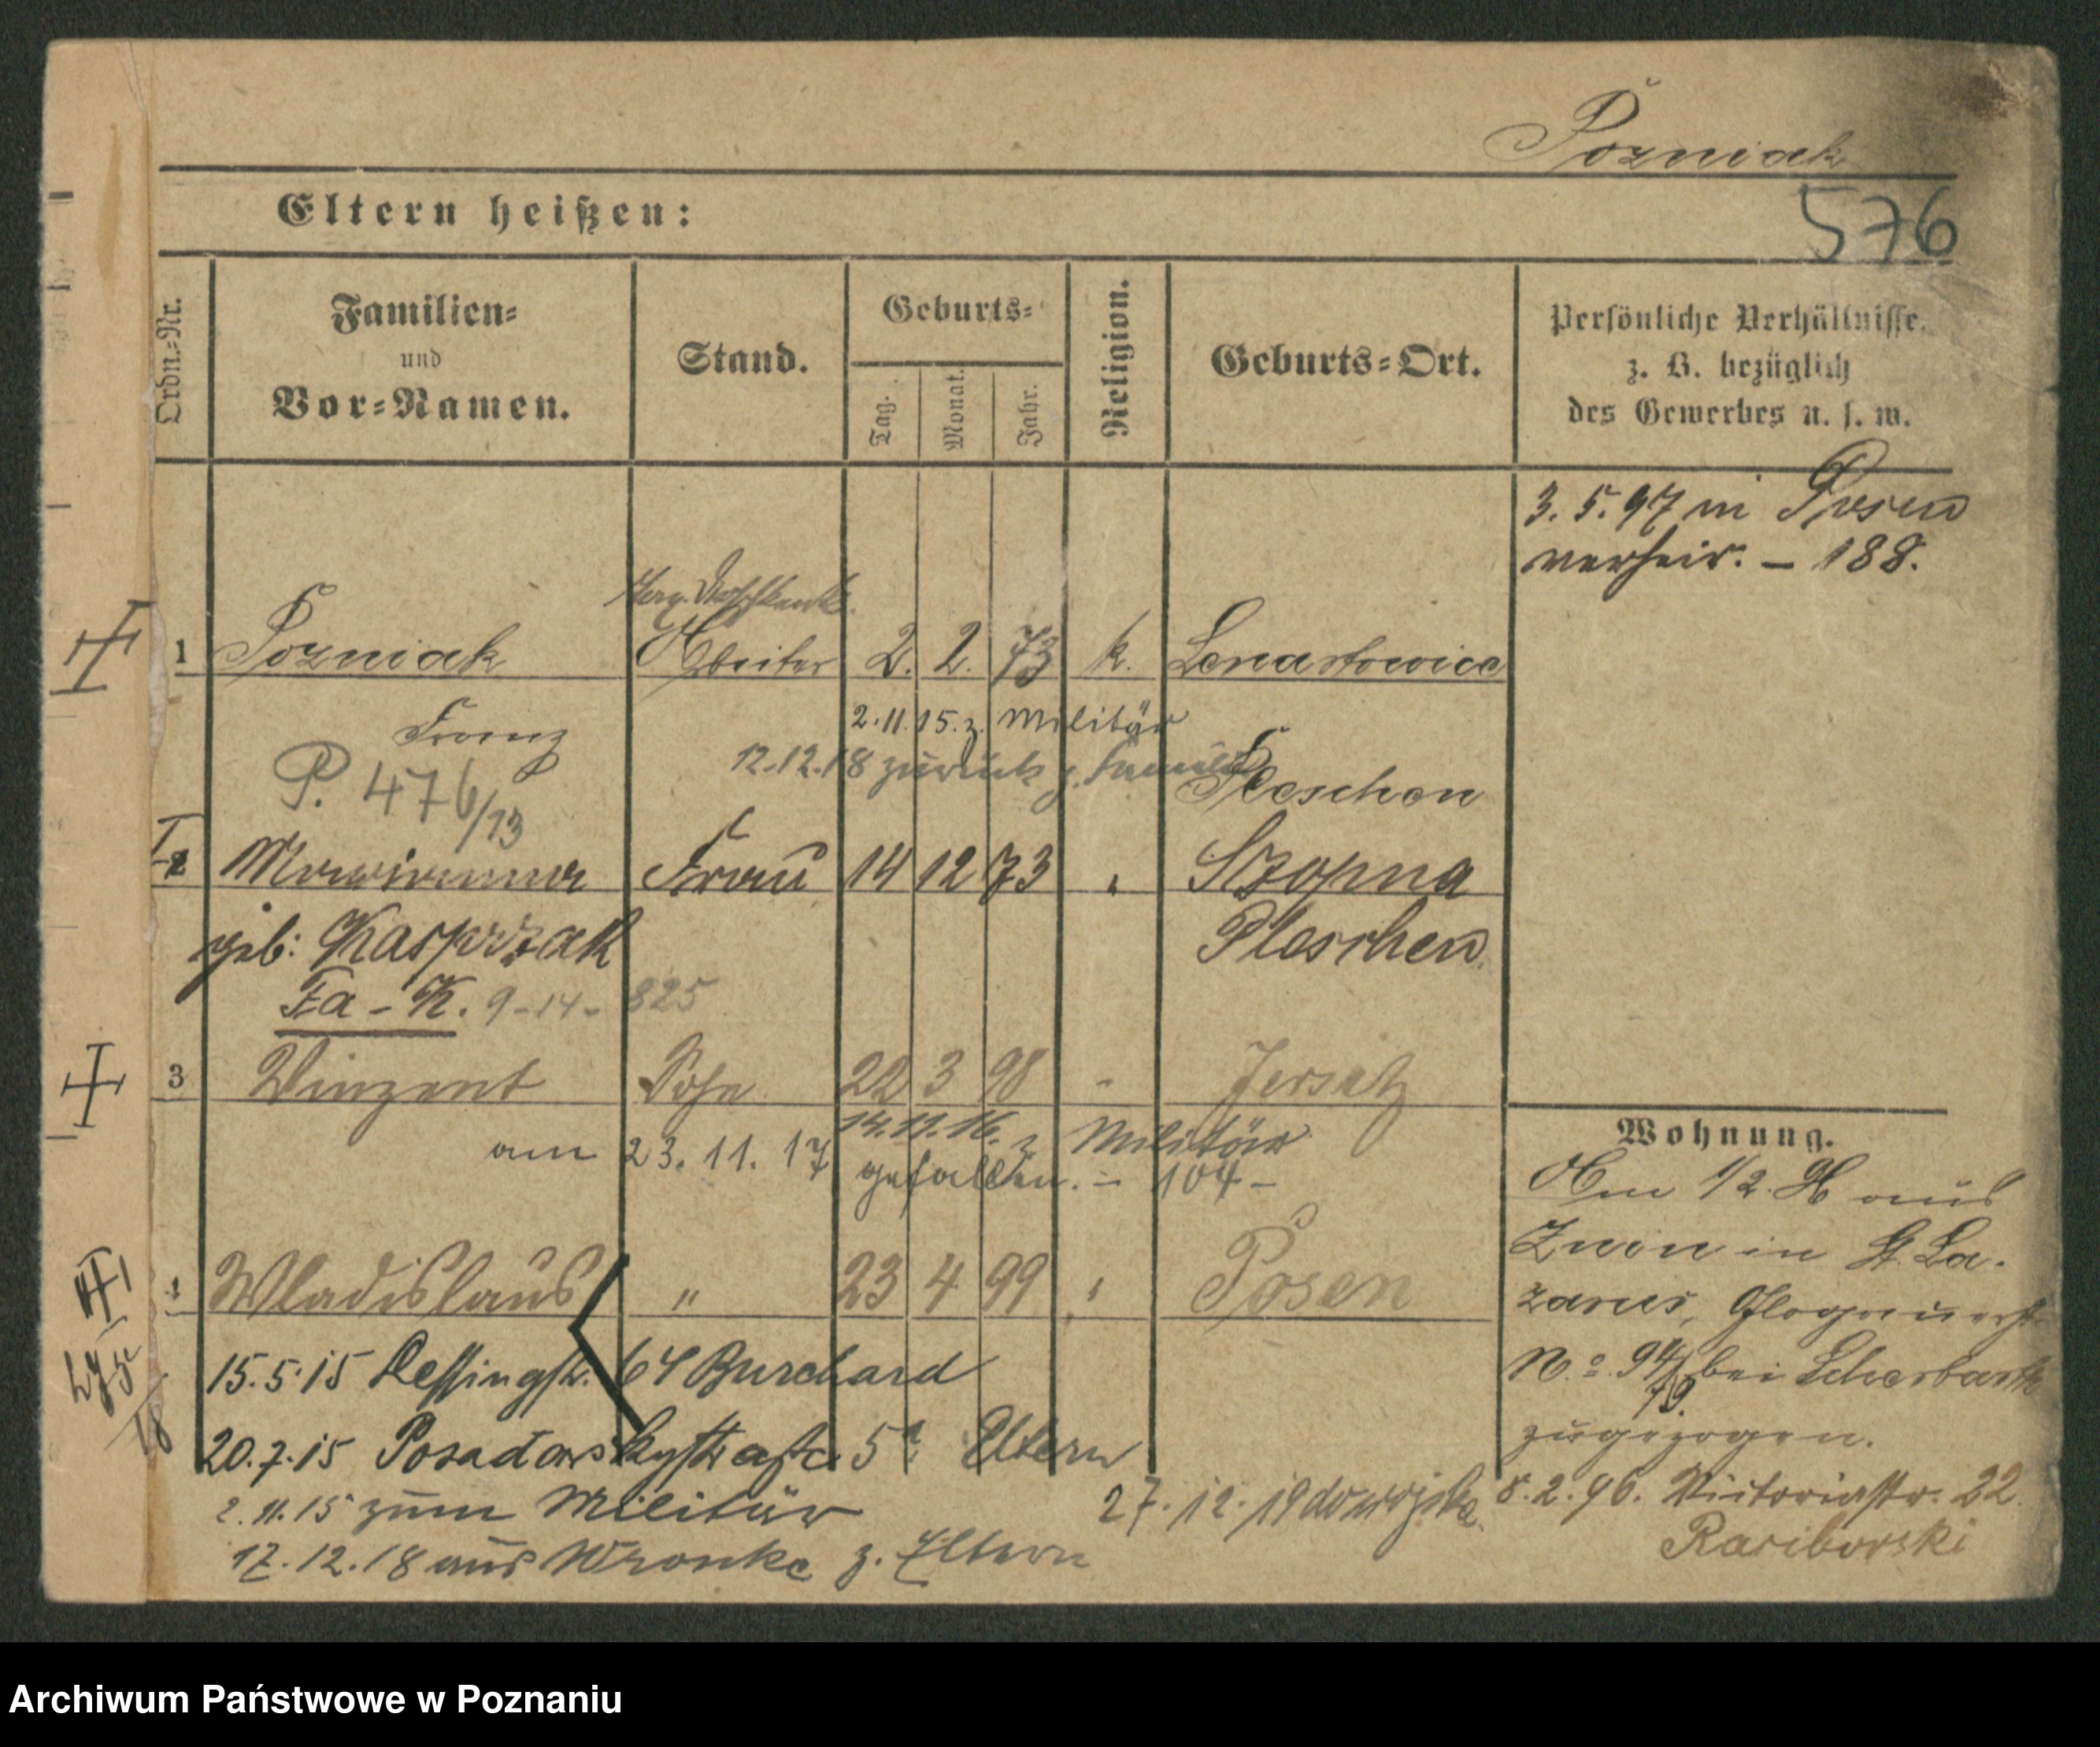 Pozniak
576
Eltern heißen:
Ordn.-Nr.
Familien- und Vor-Namen.
Stand.
Geburts-
Tag.
Monat.
Jahr.
Religion.
Geburts-Ort.
Persönliche Verhältnisse,
z. B. bezüglich
des Gewerbes u. s. w.
3. 5. 97 in Posen
verheir. – 188.
1 Pozniak Arbeiter 2. 2. 73 k. Lenartowice
Franz
2.11.15. z. Militär
12.12.18 zurück z. Familie
Pleschen
P. 476/13
2 Marianna Frau 14 12 73 " Szopna
geb: Kasprzak Pleschen
Fa - K. 9-14- 825
3 Vinzent Sohn 22 3 98 " Jersitz
14.11.16. z. Militär
am 23. 11. 17 gefallen. – 104 –
4 Wladislaus " 23 4 99 " Posen
15.5.15 Lessingstr. 64 Burchard
20.7.15 Posadowskystraße 5a Eltern
2.11.15 zum Militär
17.12.18 aus Wronke z. Eltern
27.12.19 do wojska
Wohnung.
Am 1/2. 96 aus
Znin in St. La-
zarus, Glogauerstr.
No. 94/79. bei Scherbarth
zugezogen.
8.2.96. Victoriastr. 22
Rariborski
Archiwum Państwowe w Poznaniu